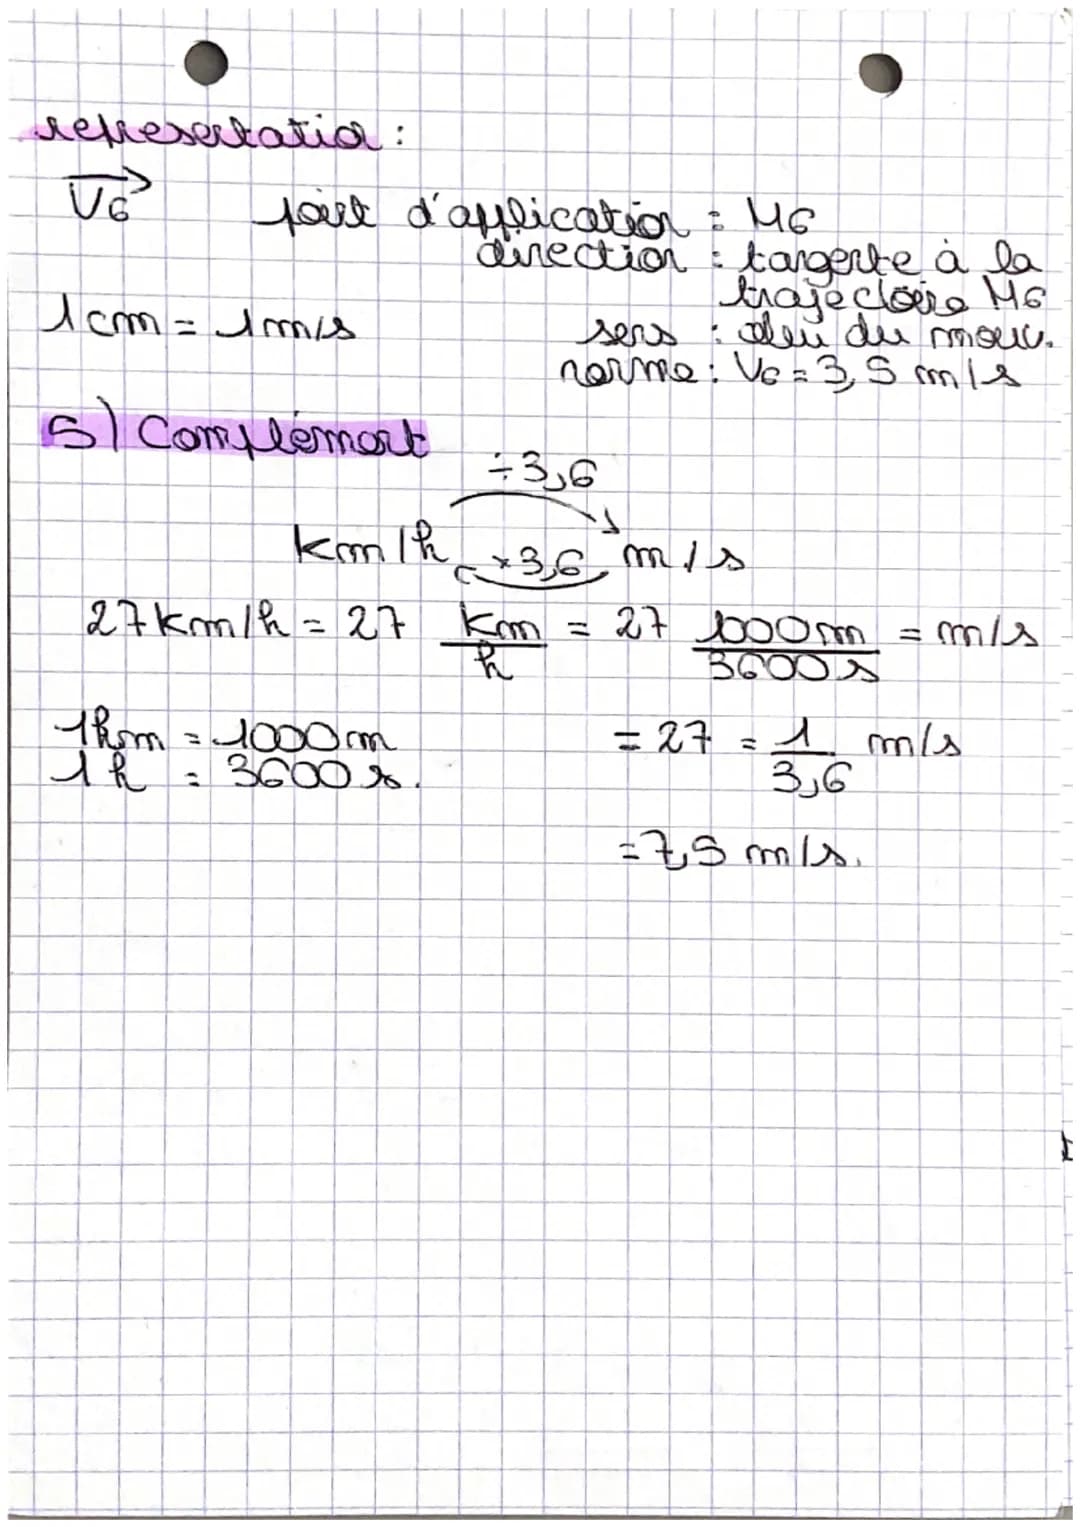 représentation :
V6 point d'application : M6
direction : tangente à la
trajectoire M6
1 cm = 1 m/s sens : celui du mouv.
norme : V6 = 3,5 m/s
5) Complément
÷3,6
km/h ×3,6 m/s
27 km/h = 27 km/h = 27 1000m/3600s = m/s
1km = 1000m = 27 = 1/3,6 m/s
1h = 3600s.
= 7,5 m/s.